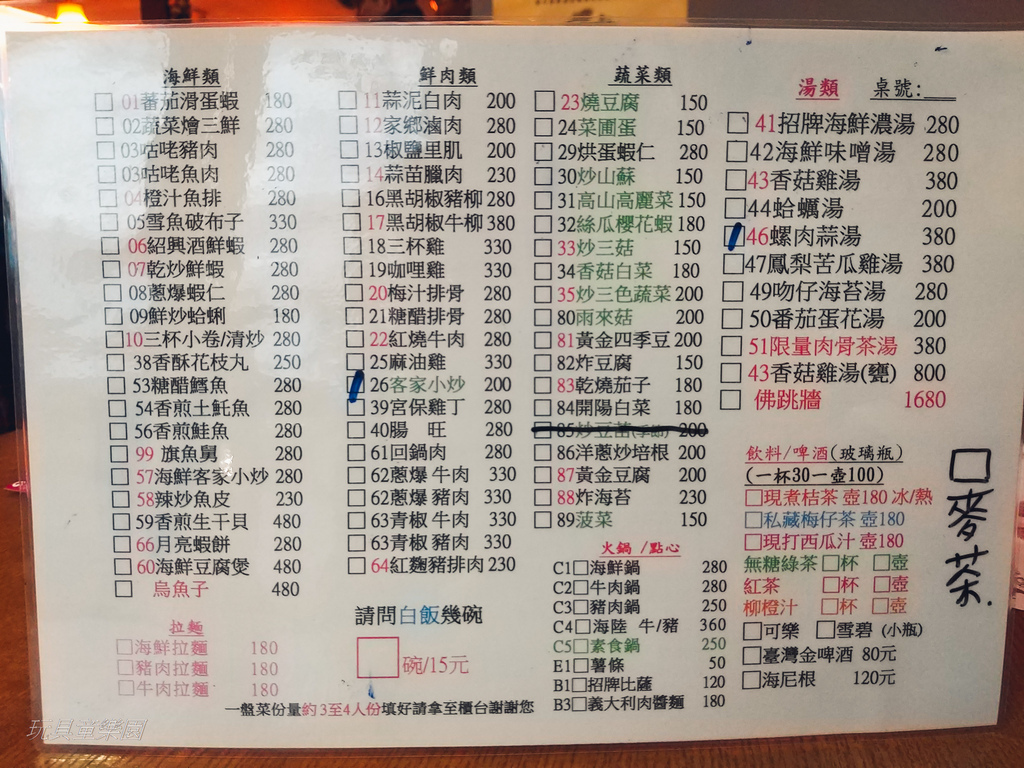 海鮮類
01蕃茄滑蛋蝦 180
02蔬菜燴三鮮 280
03咕咾豬肉 280
03咕咾魚肉 280
04橙汁魚排 280
05雪魚破布子 330
06紹興酒鮮蝦 280
07乾炒鮮蝦 280
08蔥爆蝦仁 280
09鮮炒蛤蜊 180
10三杯小卷/清炒 280
38香酥花枝丸 250
53糖醋鱈魚 280
54香煎土魠魚 280
56香煎鮭魚 280
99 旗魚舅 280
57海鮮客家小炒 280
58辣炒魚皮 230
59香煎生干貝 480
66月亮蝦餅 280
60海鮮豆腐煲 480
烏魚子 480
拉麵
海鮮拉麵 180
豬肉拉麵 180
牛肉拉麵 180
鮮肉類
11蒜泥白肉 200
12家鄉滷肉 280
13椒鹽里肌 200
14蒜苗臘肉 230
16黑胡椒豬柳 280
17黑胡椒牛柳 380
18三杯雞 330
19咖哩雞 330
20梅汁排骨 280
21糖醋排骨 280
22紅燒牛肉 280
25麻油雞 330
26客家小炒 200
39宮保雞丁 280
40腸 旺 280
61回鍋肉 280
62蔥爆 牛肉 330
62蔥爆 豬肉 330
63青椒 牛肉 330
63青椒 豬肉 330
64紅麴豬排肉 230
請問白飯幾碗
碗/15元
一盤菜份量約3至4人份填好請拿至櫃台謝謝您
蔬菜類
23燒豆腐 150
24菜圃蛋 150
29烘蛋蝦仁 280
30炒山蘇 150
31高山高麗菜 150
32絲瓜櫻花蝦 180
33炒三菇 150
34香菇白菜 180
35炒三色蔬菜 200
80雨來菇 200
81黃金四季豆 200
82炸豆腐 150
83乾燒茄子 180
84開陽白菜 180
85炒豆苗(季節) 200
86洋蔥炒培根 200
87黃金豆腐 200
88炸海苔 230
89菠菜 150
火鍋 /點心
C1海鮮鍋 280
C2牛肉鍋 280
C3豬肉鍋 250
C4海陸 牛/豬 360
C5素食鍋 250
E1薯條 50
B1招牌比薩 120
B3義大利肉醬麵 180
湯類 桌號:___
41招牌海鮮濃湯 280
42海鮮味噌湯 280
43香菇雞湯 380
44蛤蠣湯 200
46螺肉蒜湯 380
47鳳梨苦瓜雞湯 380
49吻仔海苔湯 280
50番茄蛋花湯 200
51限量肉骨茶湯 380
43香菇雞湯(甕) 800
佛跳牆 1680
飲料/啤酒(玻璃瓶)
(一杯30一壺100)
現煮桔茶 壺180 冰/熱
私藏梅仔茶 壺180
現打西瓜汁 壺180
無糖綠茶 杯 壺
紅茶 杯 壺
柳橙汁 杯 壺
可樂 雪碧 (小瓶)
臺灣金啤酒 80元
海尼根 120元
麥茶.
玩具童樂園